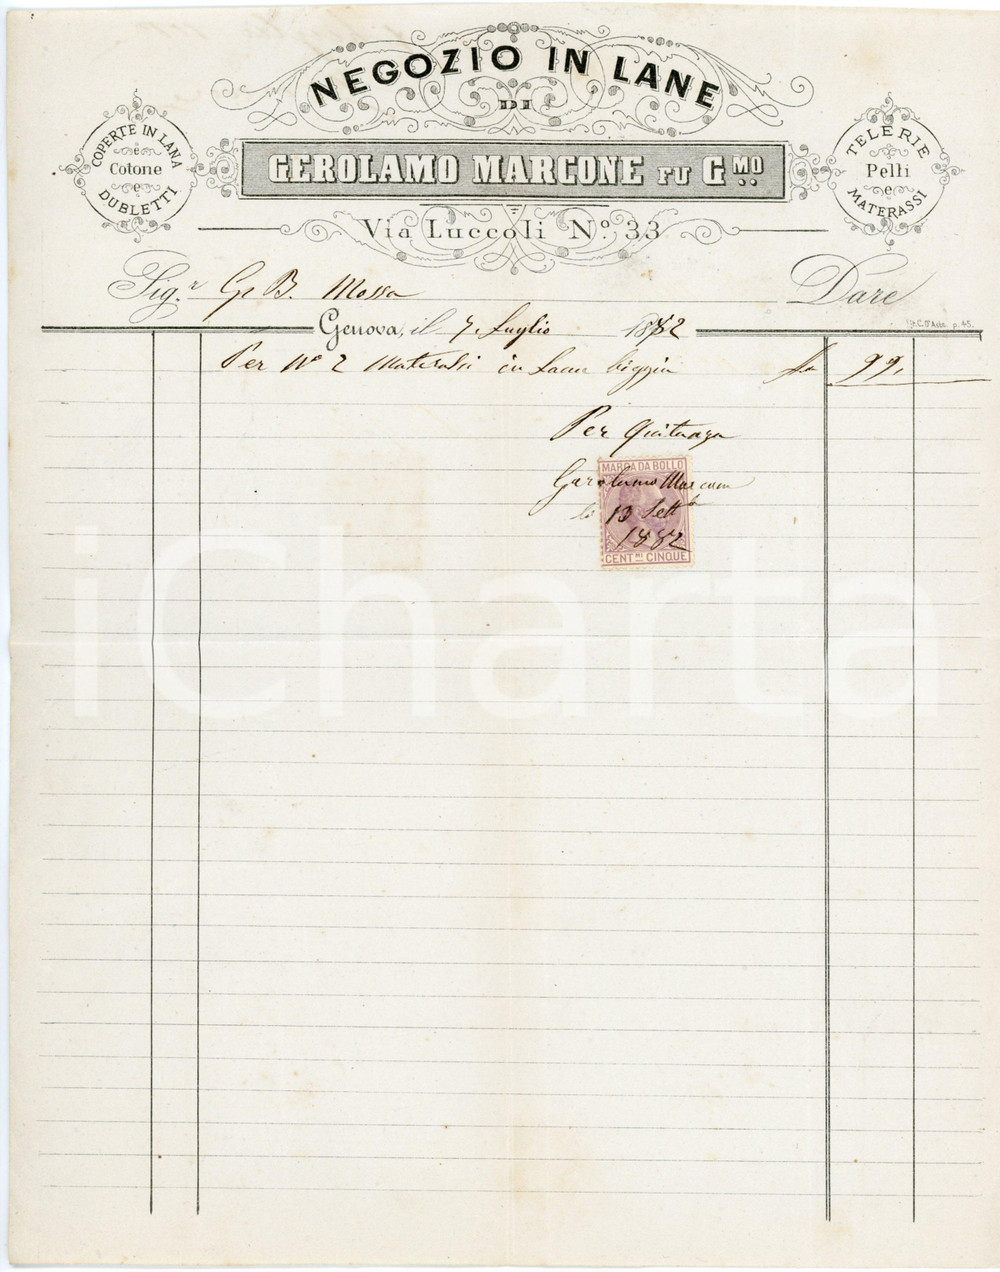 NEGOZIO IN LANE
DI
GEROLAMO MARCONE FU G.MO
COPERTE IN LANA
e
Cotone
e
DUBLETTI
TELERIE
Pelli
e
MATERASSI
Via Luccoli N.o 33
Sig.r G. B. Mossa Dare
Genova, il 7. Luglio 1882
Per No 2 Materassi in Lana biggia 99,
Per Quitanza
MARCA DA BOLLO
Gerolamo Marcone
li 13 Sett
1882
CENT.MI CINQUE
iCharta